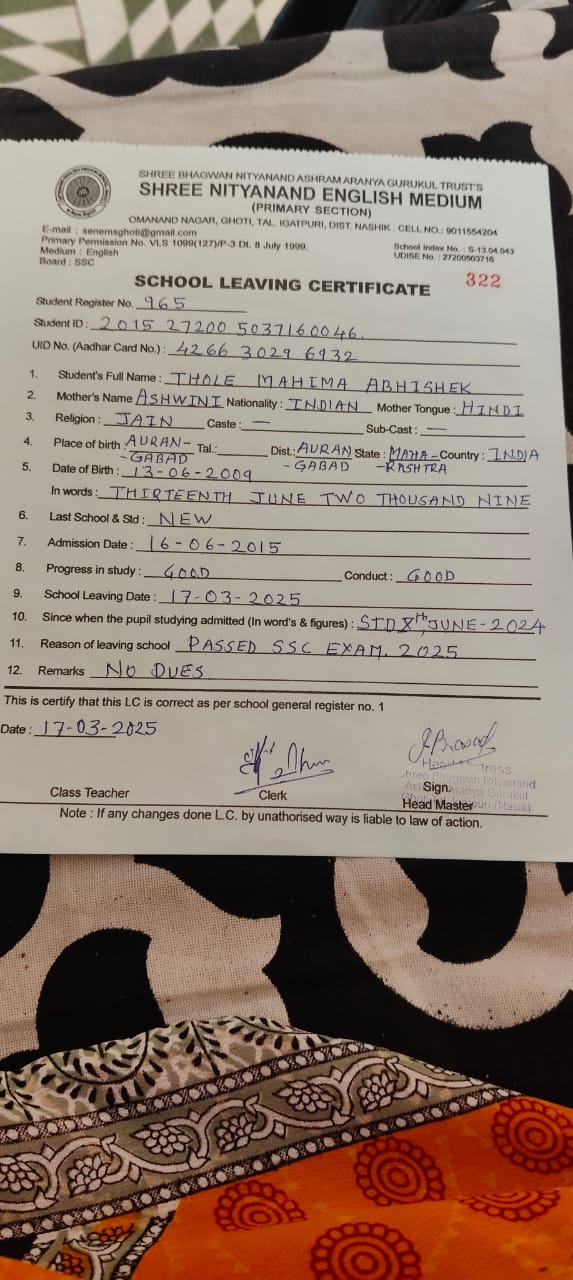 SHREE BHAGWAN NITYANAND ASHRAM ARANYA GURUKUL TRUST'S
SHREE NITYANAND ENGLISH MEDIUM
(PRIMARY SECTION)
OMANAND NAGAR, GHOTI, TAL. IGATPURI, DIST. NASHIK. CELL NO.: 9011554204
E-mail : senemsghoti@gmail.com
Primary Permission No. VLS 1099(127)/P-3 Dt. 8 July 1999.
School Index No. : S-13.04.043
Medium : English
UDISE No. : 27200503716
Board : SSC
SCHOOL LEAVING CERTIFICATE 322
Student Register No. 965
Student ID : 2015 27200 5037160046.
UID No. (Aadhar Card No.) : 4266 3029 6932
1. Student's Full Name : THOLE MAHIMA ABHISHEK
2. Mother's Name ASHWINI Nationality : INDIAN Mother Tongue : HINDI
3. Religion : JAIN Caste : — Sub-Cast : —
4. Place of birth AURAN- Tal.: Dist.: AURAN State : MAHA- Country : INDIA
-GABAD -GABAD -RASHTRA
5. Date of Birth : 13-06-2009
In words : THIRTEENTH JUNE TWO THOUSAND NINE
6. Last School & Std : NEW
7. Admission Date : 16-06-2015
8. Progress in study : GOOD Conduct : GOOD
9. School Leaving Date : 17-03-2025
10. Since when the pupil studying admitted (In word's & figures) : STD Xth, JUNE-2024
11. Reason of leaving school PASSED SSC EXAM. 2025
12. Remarks NO DUES
This is certify that this LC is correct as per school general register no. 1
Date : 17-03-2025
Shree Bhagwan Nityanand
Class Teacher Clerk Sign.
Head Master
Note : If any changes done L.C. by unathorised way is liable to law of action.